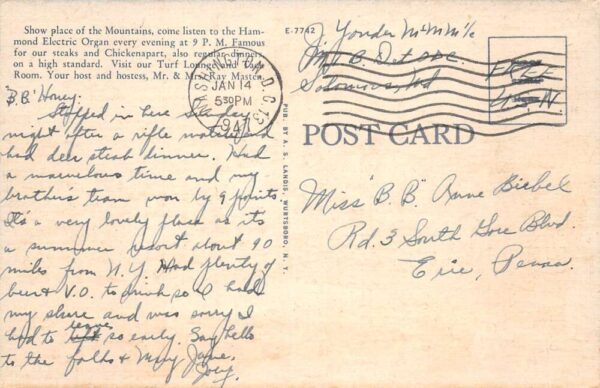 Show place of the Mountains, come listen to the Ham-
mond Electric Organ every evening at 9 P. M. Famous
for our steaks and Chickenapart, also regular dinners
on a high standard. Visit our Turf Lounge and
Room. Your host and hostess, Mr. & Mrs. Ray Master.
"B.B" Honey:
Stopped in here Saturday
night after a rifle match and
had deer steak dinner. Had
a marvelous time and my
brother's team won by 9 points.
It's a very lovely place as its
a summer resort about 90
miles from N.Y. Had plenty of
beer & V.O. to drink so I had
my share and was sorry I
had to leave so early. Say hello
to the folks & Mary Jane.
E-7742
PUB. BY A. S. LANDIS, WURTSBORO, N. Y.
WASHINGTON, D.C. 13
JAN 14
5 30 PM
1947
J. Yonder
Det
FREE
POST CARD
Miss "B.B." Anne Biebel
Rd. 3 South Gore Blvd.
Erie, Penna.